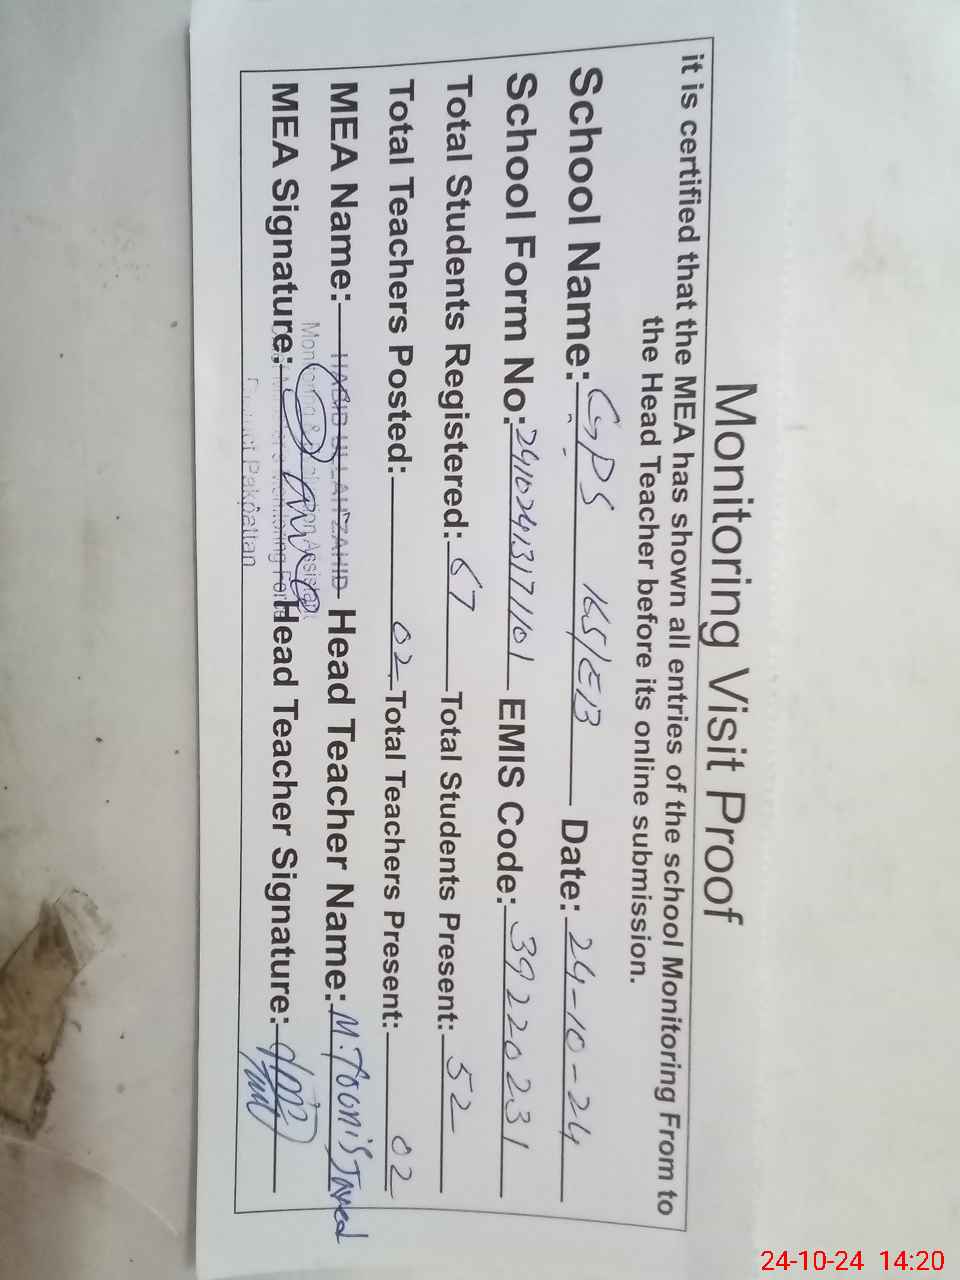 Monitoring Visit Proof
it is certified that the MEA has shown all entries of the school Monitoring From to
the Head Teacher before its online submission.
School Name: GPS 165/EB Date: 24-10-24
School Form No: 24102413171101 EMIS Code: 39220231
Total Students Registered: 67 Total Students Present: 52
Total Teachers Posted: 02 Total Teachers Present: 02
MEA Name: HABIB ULLAH ZAHID Head Teacher Name: M.
MEA Signature: Head Teacher Signature:
24-10-24 14:20